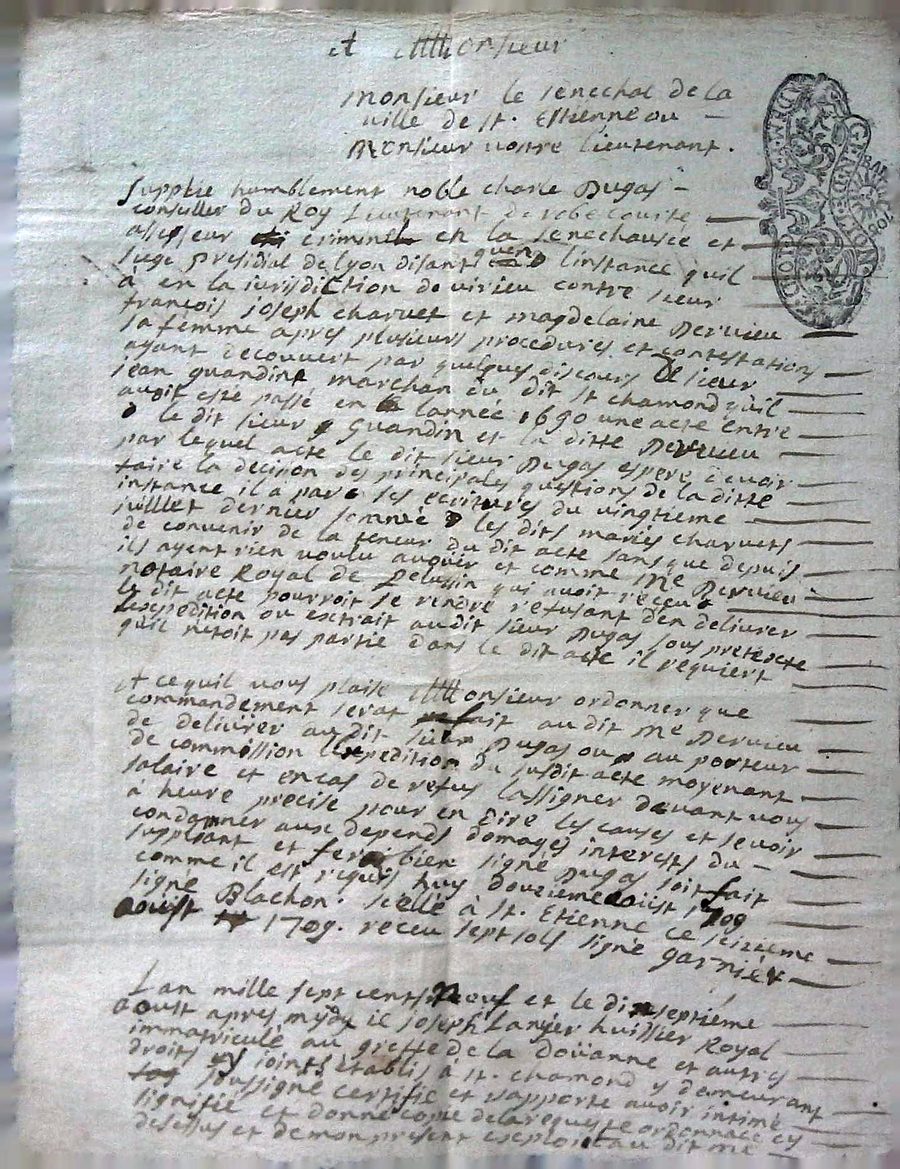 A Monsieur
monsieur le senechal de la
ville de st. Estienne ou
monsieur vostre lieutenant.
GENERALITÉ DE LION
Supplie humblement noble charle Dugas
conseiller du Roy Lieutenant de robe courte
assesseur criminel en la senechausée et
siege presidial de lyon disant quen linstance quil
à en la jurisdiction de virieu contre sieur
françois joseph charuet et magdelaine Deruieu
sa femme apres plusieurs procedures et contestations
ayant decouvert par quelques discours sieur
jean guandint marchan du dit st chamond quil
auoit esté passé en lannée 1690 une acte entre
le dit sieur guandin et la ditte Deruieu
par lequel acte le dit sieur Dugas espere deuoir
faire la decision des principales questions de la ditte
instance il a par ses ecritures du vingtieme
juillet dernier sommé les dits mariés charuets
de convenir de la teneur du dit acte sans que depuis
ils ayent rien voulu auouer et comme me Deruieu
notaire Royal de Pelussin qui auoit receu
le dit acte pourroit se rendre refusant den deliurer
lexpedition ou extrait audit sieur Dugas sous pretexte
quil netoit pas partie dans le dit acte il requiert
A cequil vous plaise Monsieur ordonner que
commandement serat fait au dit me Deruieu
de deliurer au dit sieur Dugas ou au porteur
de commission lexpedition du susdit acte moyenant
salaire et encas de refus lassigner deuant vous
à heure precise pour en dire les causes et se voir
condamner aux depends domages interests du
suppliant et ferai bien signé Dugas soit fait
comme il est requis huy douzieme aoust 1709
signé Blachon. scellé à st. Etienne ce seizieme
aoust 1709. receu sept sols signé garnier
Lan mille sept cents neuf et le dixseptiéme
aoust apres mydy je joseph Lanyer huissier Royal
immatriculé au greffe de la doüanne et autres
droits y joints établis à st. chamond y demeurant
soussigné certifie et rapporte auoir intimé
signifié et donné copie de la requeste ordonnace cy
dessus et de mon present exeploit au dit me